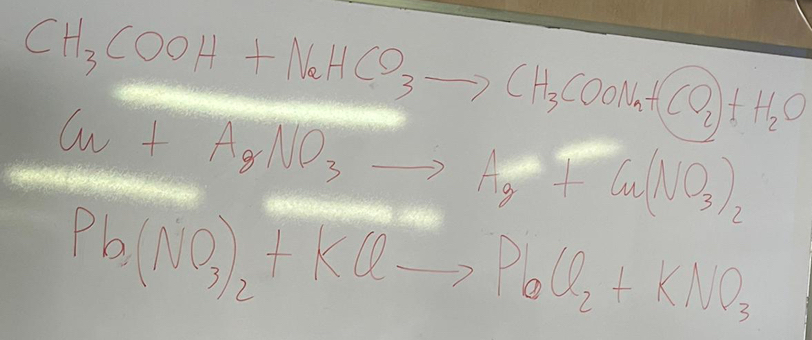 CH₃COOH + NaHCO₃ → CH₃COONa + CO₂ + H₂O
Cu + AgNO₃ → Ag + Cu(NO₃)₂
Pb(NO₃)₂ + KCl → PbCl₂ + KNO₃